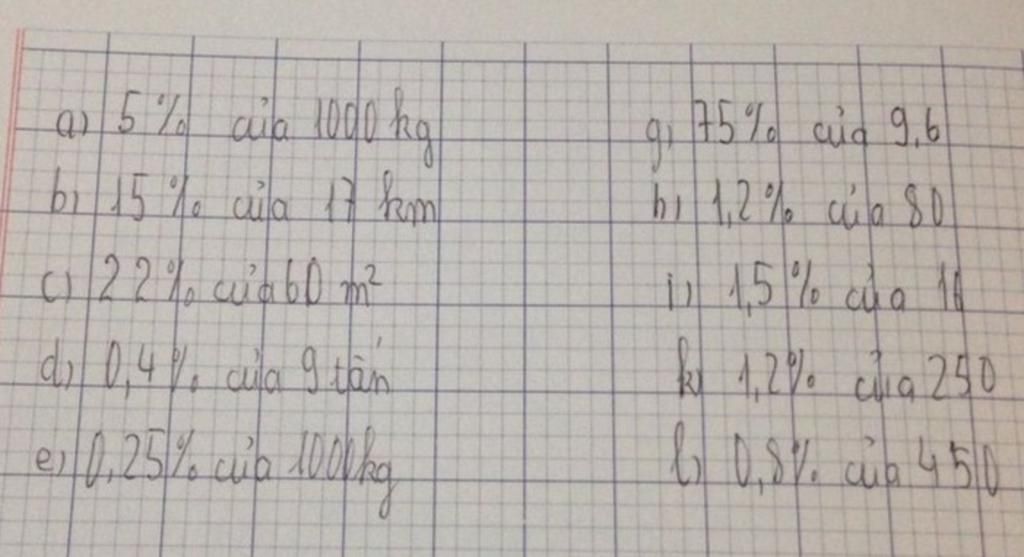 a) 5% của 1000 kg
b) 15% của 17 km
c) 22% của 60 m²
d) 0,4% của 9 tấn
e) 0,25% của 1000kg
g) 75% của 9,6
h) 1,2% của 80
i) 1,5% của
k) 1,2% của 250
l) 0,8% của 450